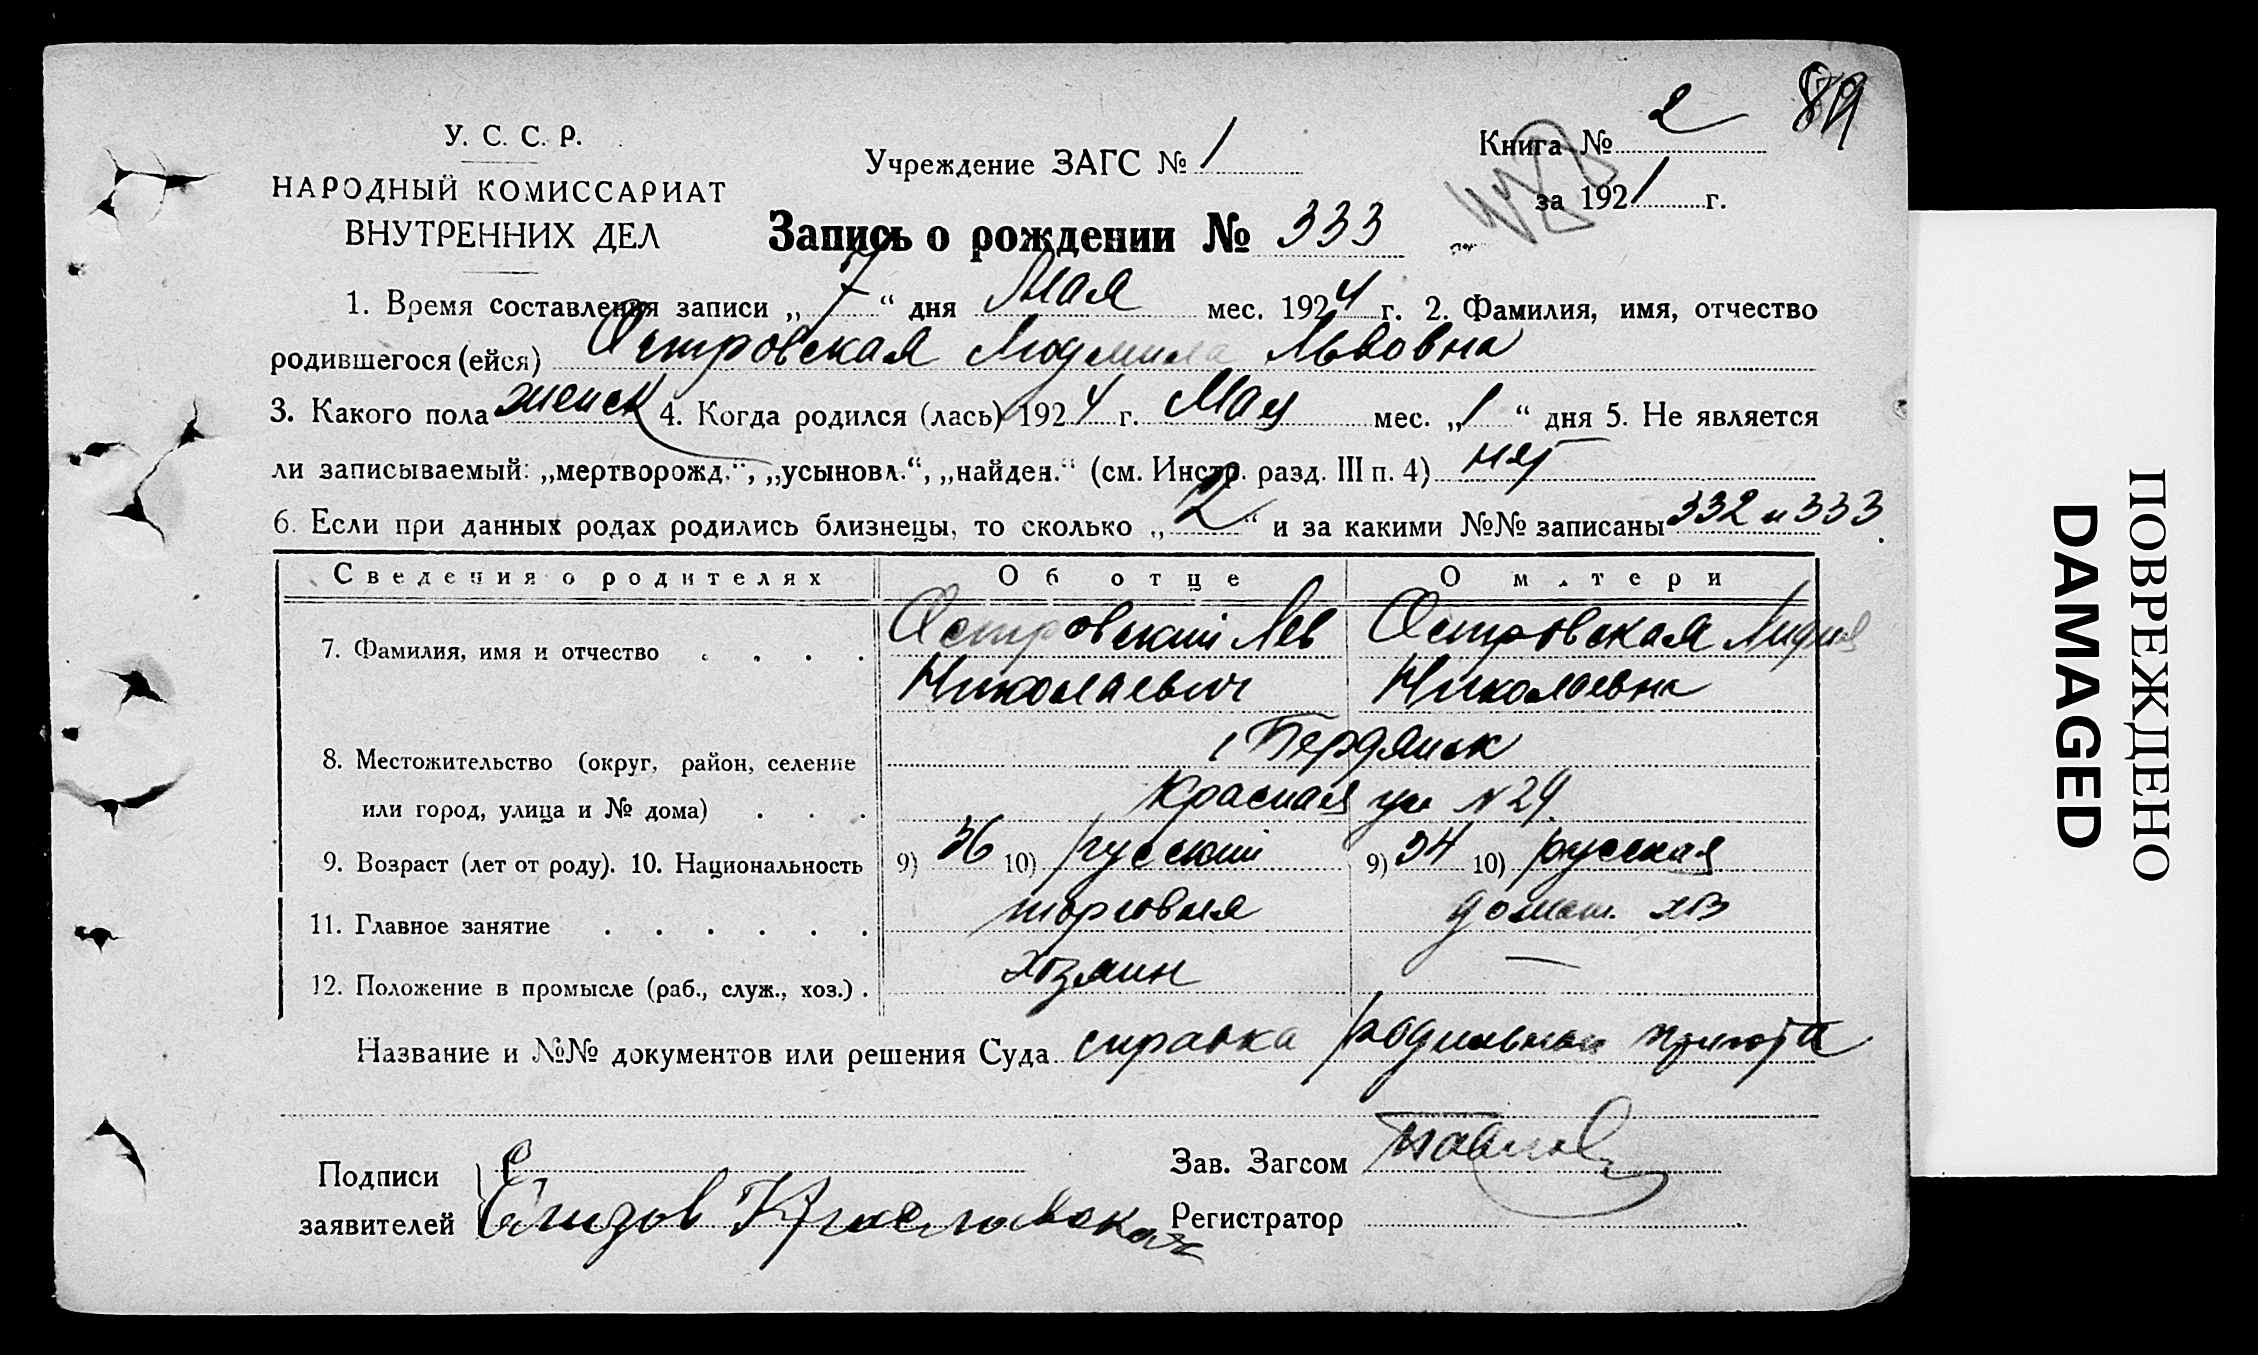 89
У. С. С. Р.
НАРОДНЫЙ КОМИССАРИАТ
ВНУТРЕННИХ ДЕЛ
Учреждение ЗАГС № 1
Книга № 2
за 1921 г.
Запись о рождении № 333
1. Время составления записи „7“ дня Мая мес. 1924 г. 2. Фамилия, имя, отчество
родившегося (ейся) Островская Людмила Львовна
3. Какого пола женск 4. Когда родился (лась) 1924 г. Мая мес. „1“ дня 5. Не является
ли записываемый: „мертворожд.“, „усыновл.“, „найден.“ (см. Инстр. разд. III п. 4) нет
6. Если при данных родах родились близнецы, то сколько „2“ и за какими №№ записаны 332 и 333
Сведения о родителях Об отце О матери
7. Фамилия, имя и отчество . . . . Островский Лев Островская Лидия
Николаевич Николаевна
8. Местожительство (округ, район, селение г Бердянск
или город, улица и № дома) . . . Красная ул N 29.
9. Возраст (лет от роду). 10. Национальность 9) 36 10) русский 9) 34 10) русская
11. Главное занятие . . . . . . торговля домаш. хоз
12. Положение в промысле (раб., служ., хоз.) . хозяин —
Название и №№ документов или решения Суда справка родильного приюта
Подписи
заявителей
Зав. Загсом
Регистратор
ПОВРЕЖДЕНО
DAMAGED